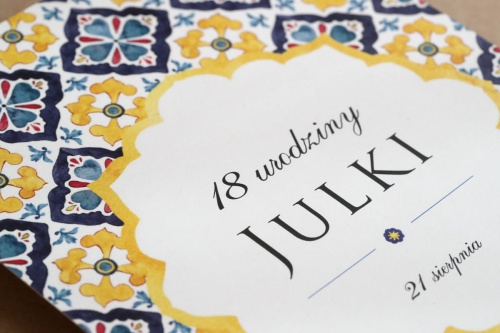 18 urodziny
JULKI
21 sierpnia